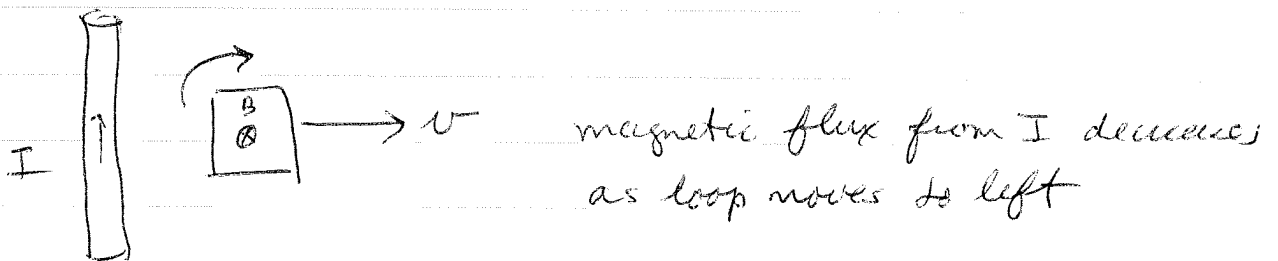 B
I
v
magnetic flux from I decreases
as loop moves to left